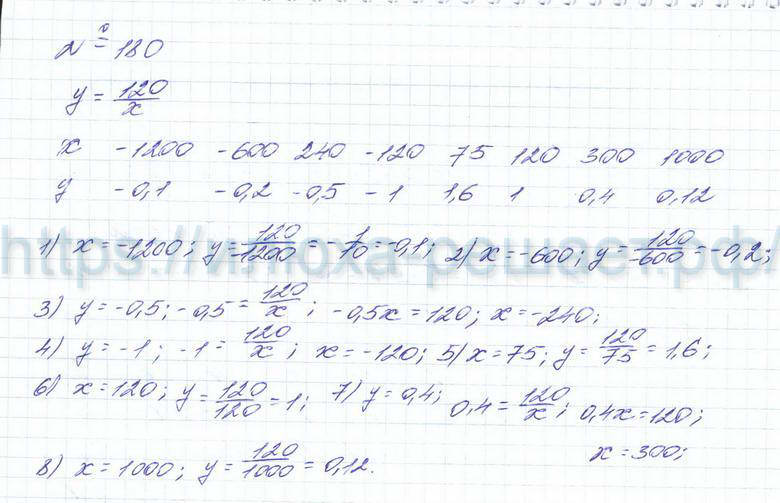 № 180
y = 120/x
x -1200 -600 240 -120 75 120 300 1000
y -0,1 -0,2 -0,5 -1 1,6 1 0,4 0,12
1) x = -1200; y = 120/-1200 = -1/10 = -0,1; 2) x = -600; y = 120/-600 = -0,2;
3) y = -0,5; -0,5 = 120/x; -0,5x = 120; x = -240;
4) y = -1; -1 = 120/x; x = -120; 5) x = 75; y = 120/75 = 1,6;
6) x = 120; y = 120/120 = 1; 7) y = 0,4; 0,4 = 120/x; 0,4x = 120;
x = 300;
8) x = 1000; y = 120/1000 = 0,12.